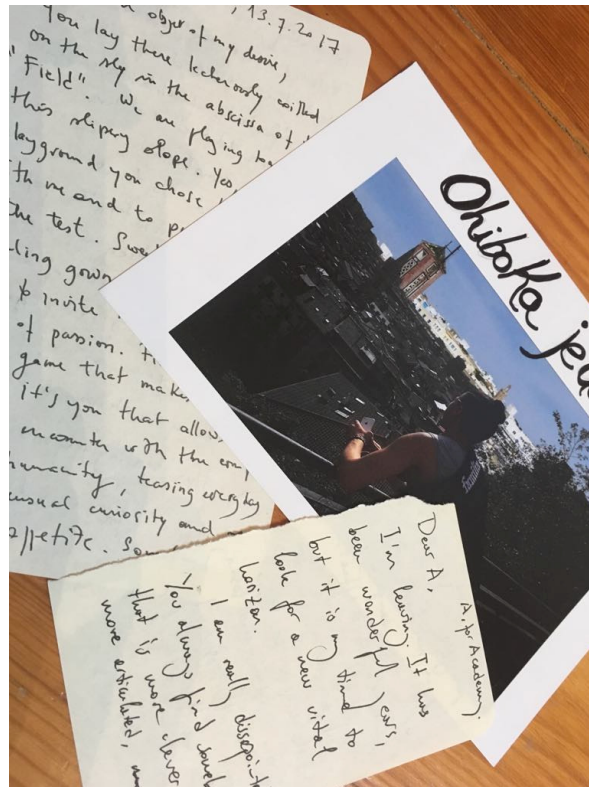 , 13.7.2017
object of my desire,
You lay there lecherously coiled
on the sly in the abscissa of
"Field". We are playing
this slippery slope. Yes,
layground you chose
th me and to p
the test. Swe
ling gown
to invite
of passion.
game that make
it's you that allow
encounter with the
humacity, teasing everyday
usual curiosity and
appetite. So
Ohiboka jeu
Dear A, A. for Academy.
I'm leaving. It has
been wonderful years,
but it is my time to
look for a new vital
horizon.
I am really disappoint
You always find someb
that is more clever
more articulated,